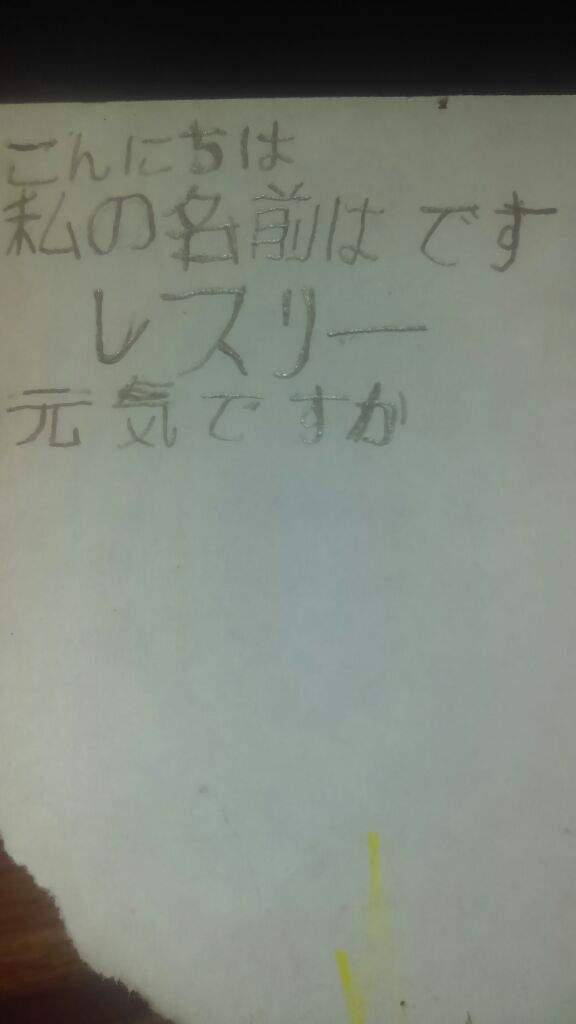 こんにちは
私の名前は です
レスリー
元気ですか